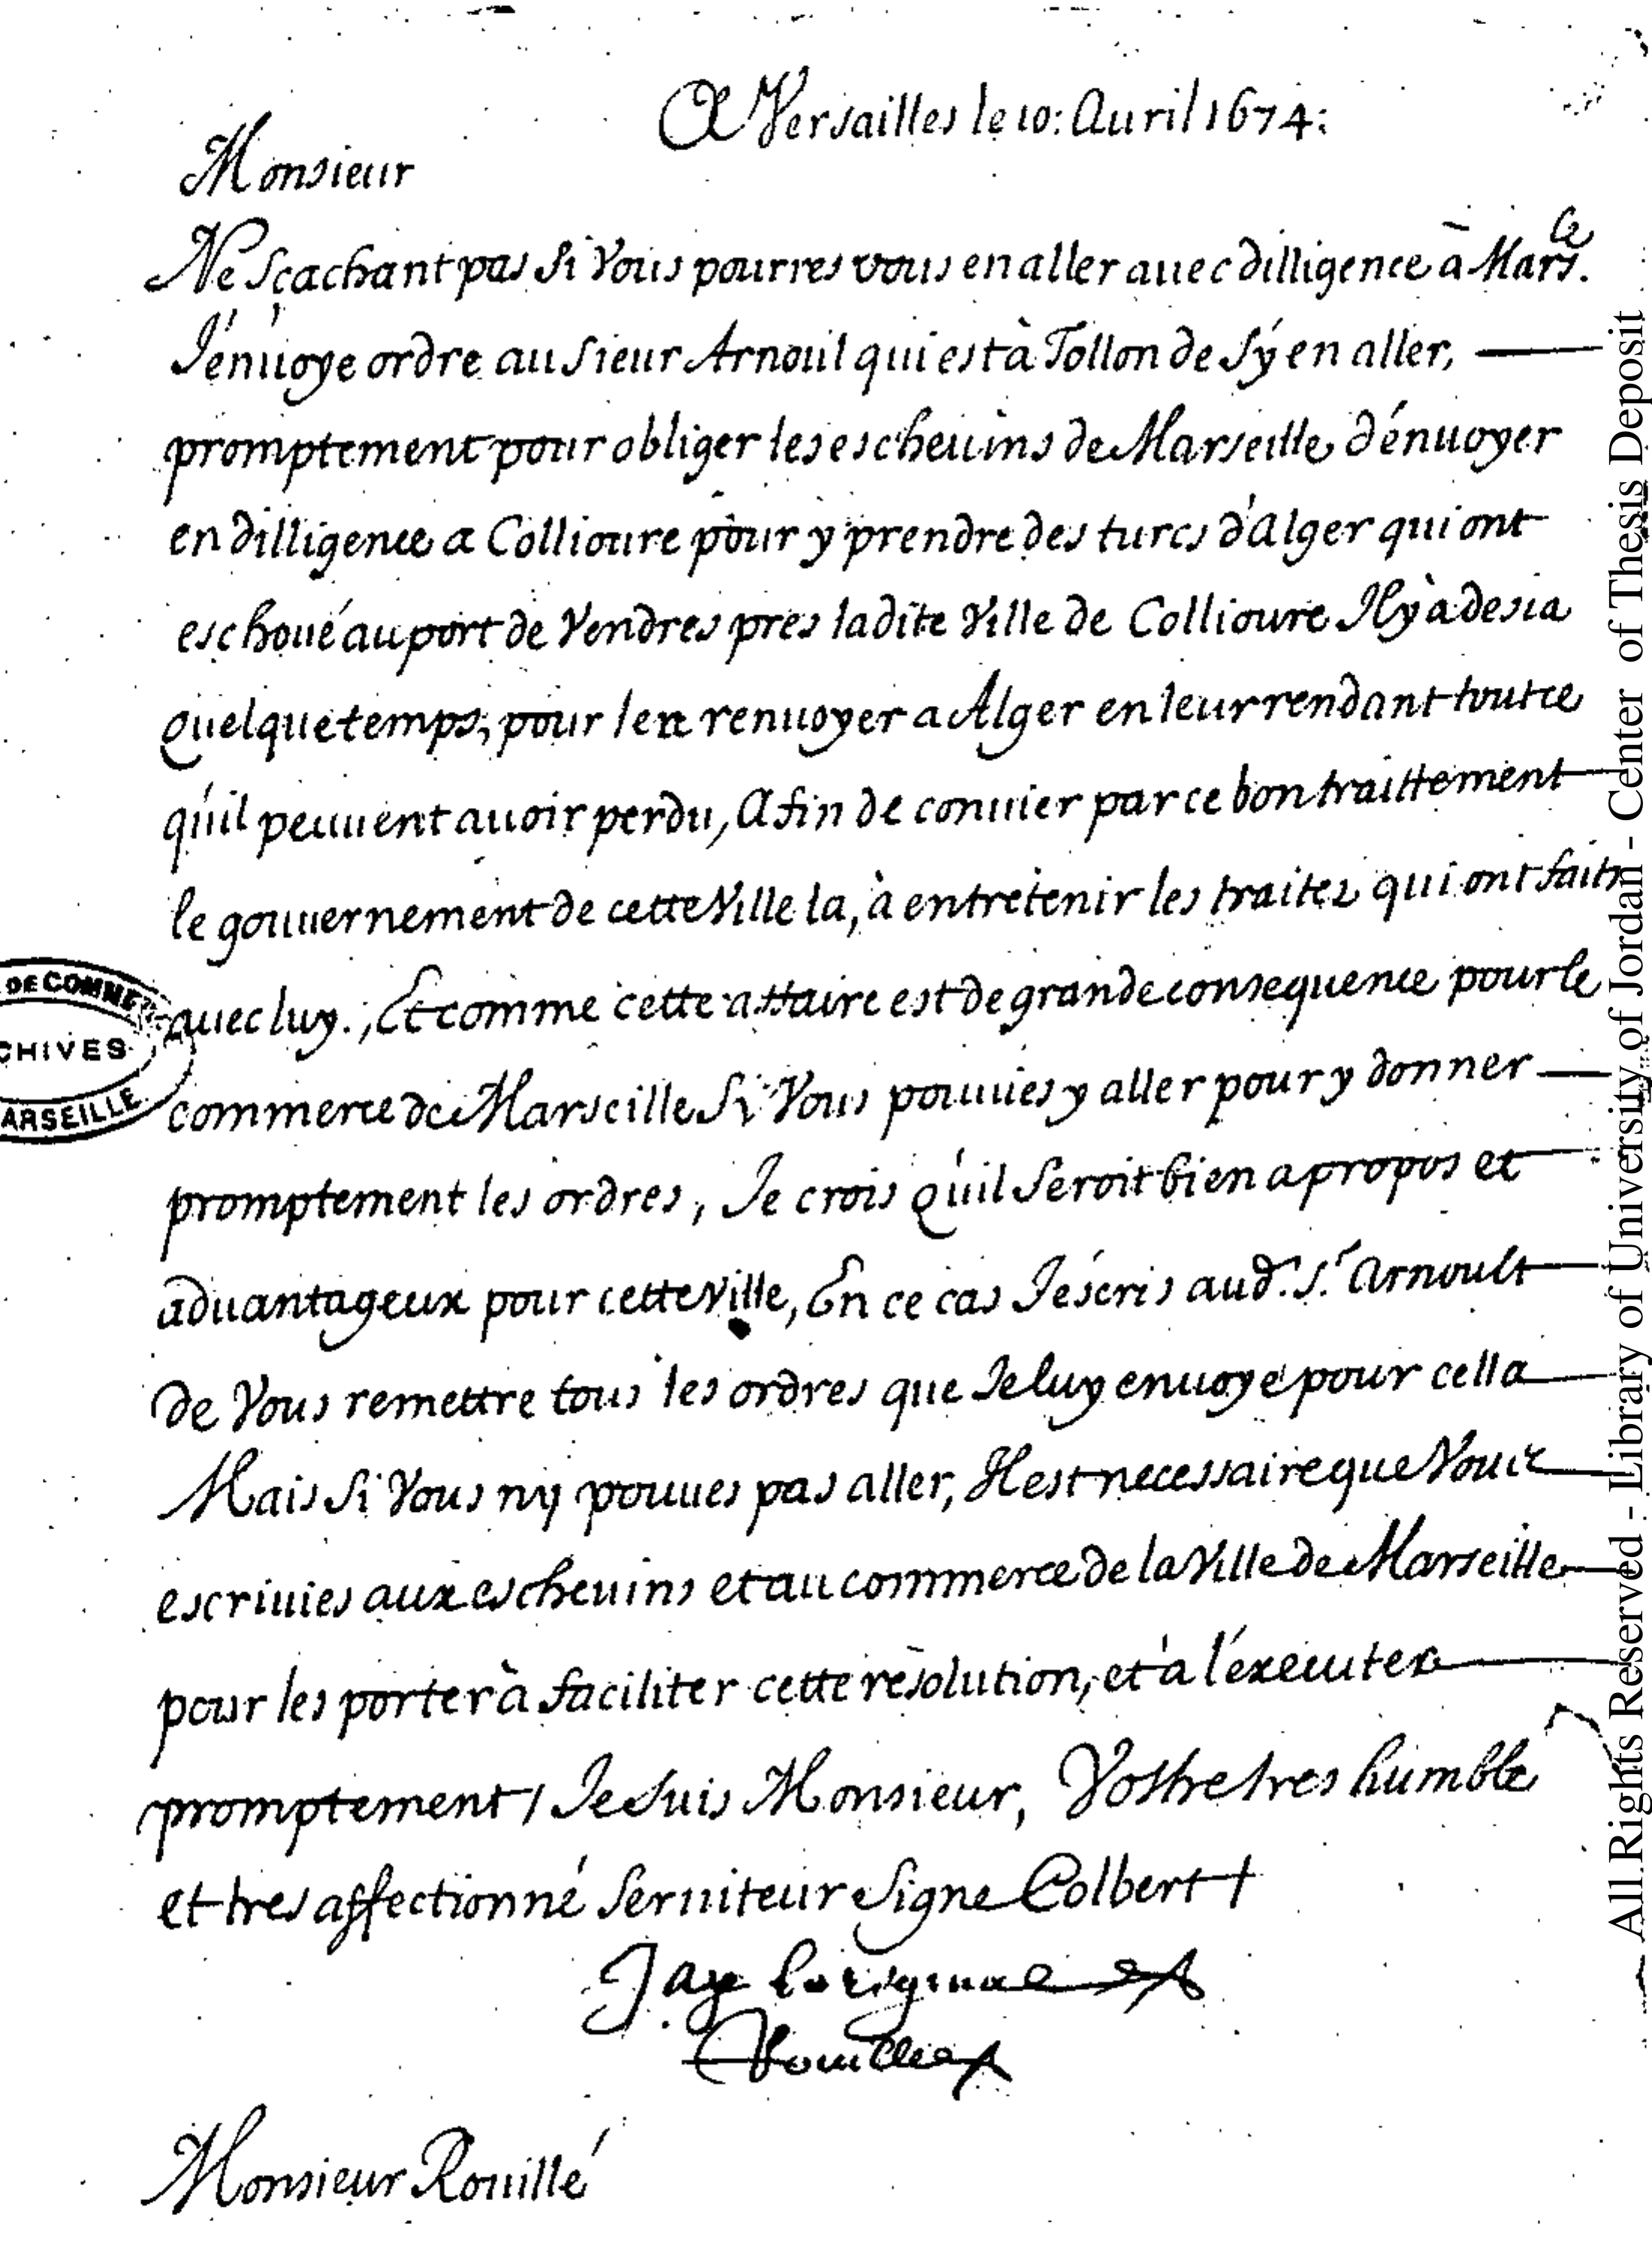 A Versailles le 10: Auril 1674:
Monsieur
Ne Sçachant pas Si Vous pourres vous en aller auec dilligence à Mars.le
J'énuoye ordre au Sieur Arnoul qui est à Tollon de S'ÿ en aller,
promptement pour obliger les escheuins de Marseille d'énuoyer
en dilligence a Collioure pour y prendre des turcs d'Alger qui ont
eschoué au port de Vendres pres ladite Ville de Collioure Il y à desia
quelque temps; pour les renuoyer a Alger en leur rendant tout ce
qu'il peuuent auoir perdu, Afin de conuier par ce bon traittement
le gouuernement de cette Ville la, à entretenir les traitez qui ont faits
auec luy., Et comme cette affaire est de grande consequence pour le
commerce de Marseille Si Vous pouuies y aller pour y donner
promptement les ordres, Je crois qu'il Seroit bien a propos et
aduantageux pour cette Ville, En ce cas J'éscris aud. S.r Arnoult
de Vous remettre tous les ordres que Je luy enuoye pour cella
Mais Si Vous ny pouues pas aller, Il est necessaire que Vous
escriuies aux escheuins et au commerce de la Ville de Marseille
pour les porter à faciliter cette résolution, et à l'éxecuter
promptement / Je Suis Monsieur, Vostre tres humble
et tres affectionné Seruiteur Signe Colbert
Jay loriginal
Rouille
Monsieur Rouillé
DE COMMERCE
CHIVES
ARSEILLE
All Rights Reserved - Library of University of Jordan - Center of Thesis Deposit